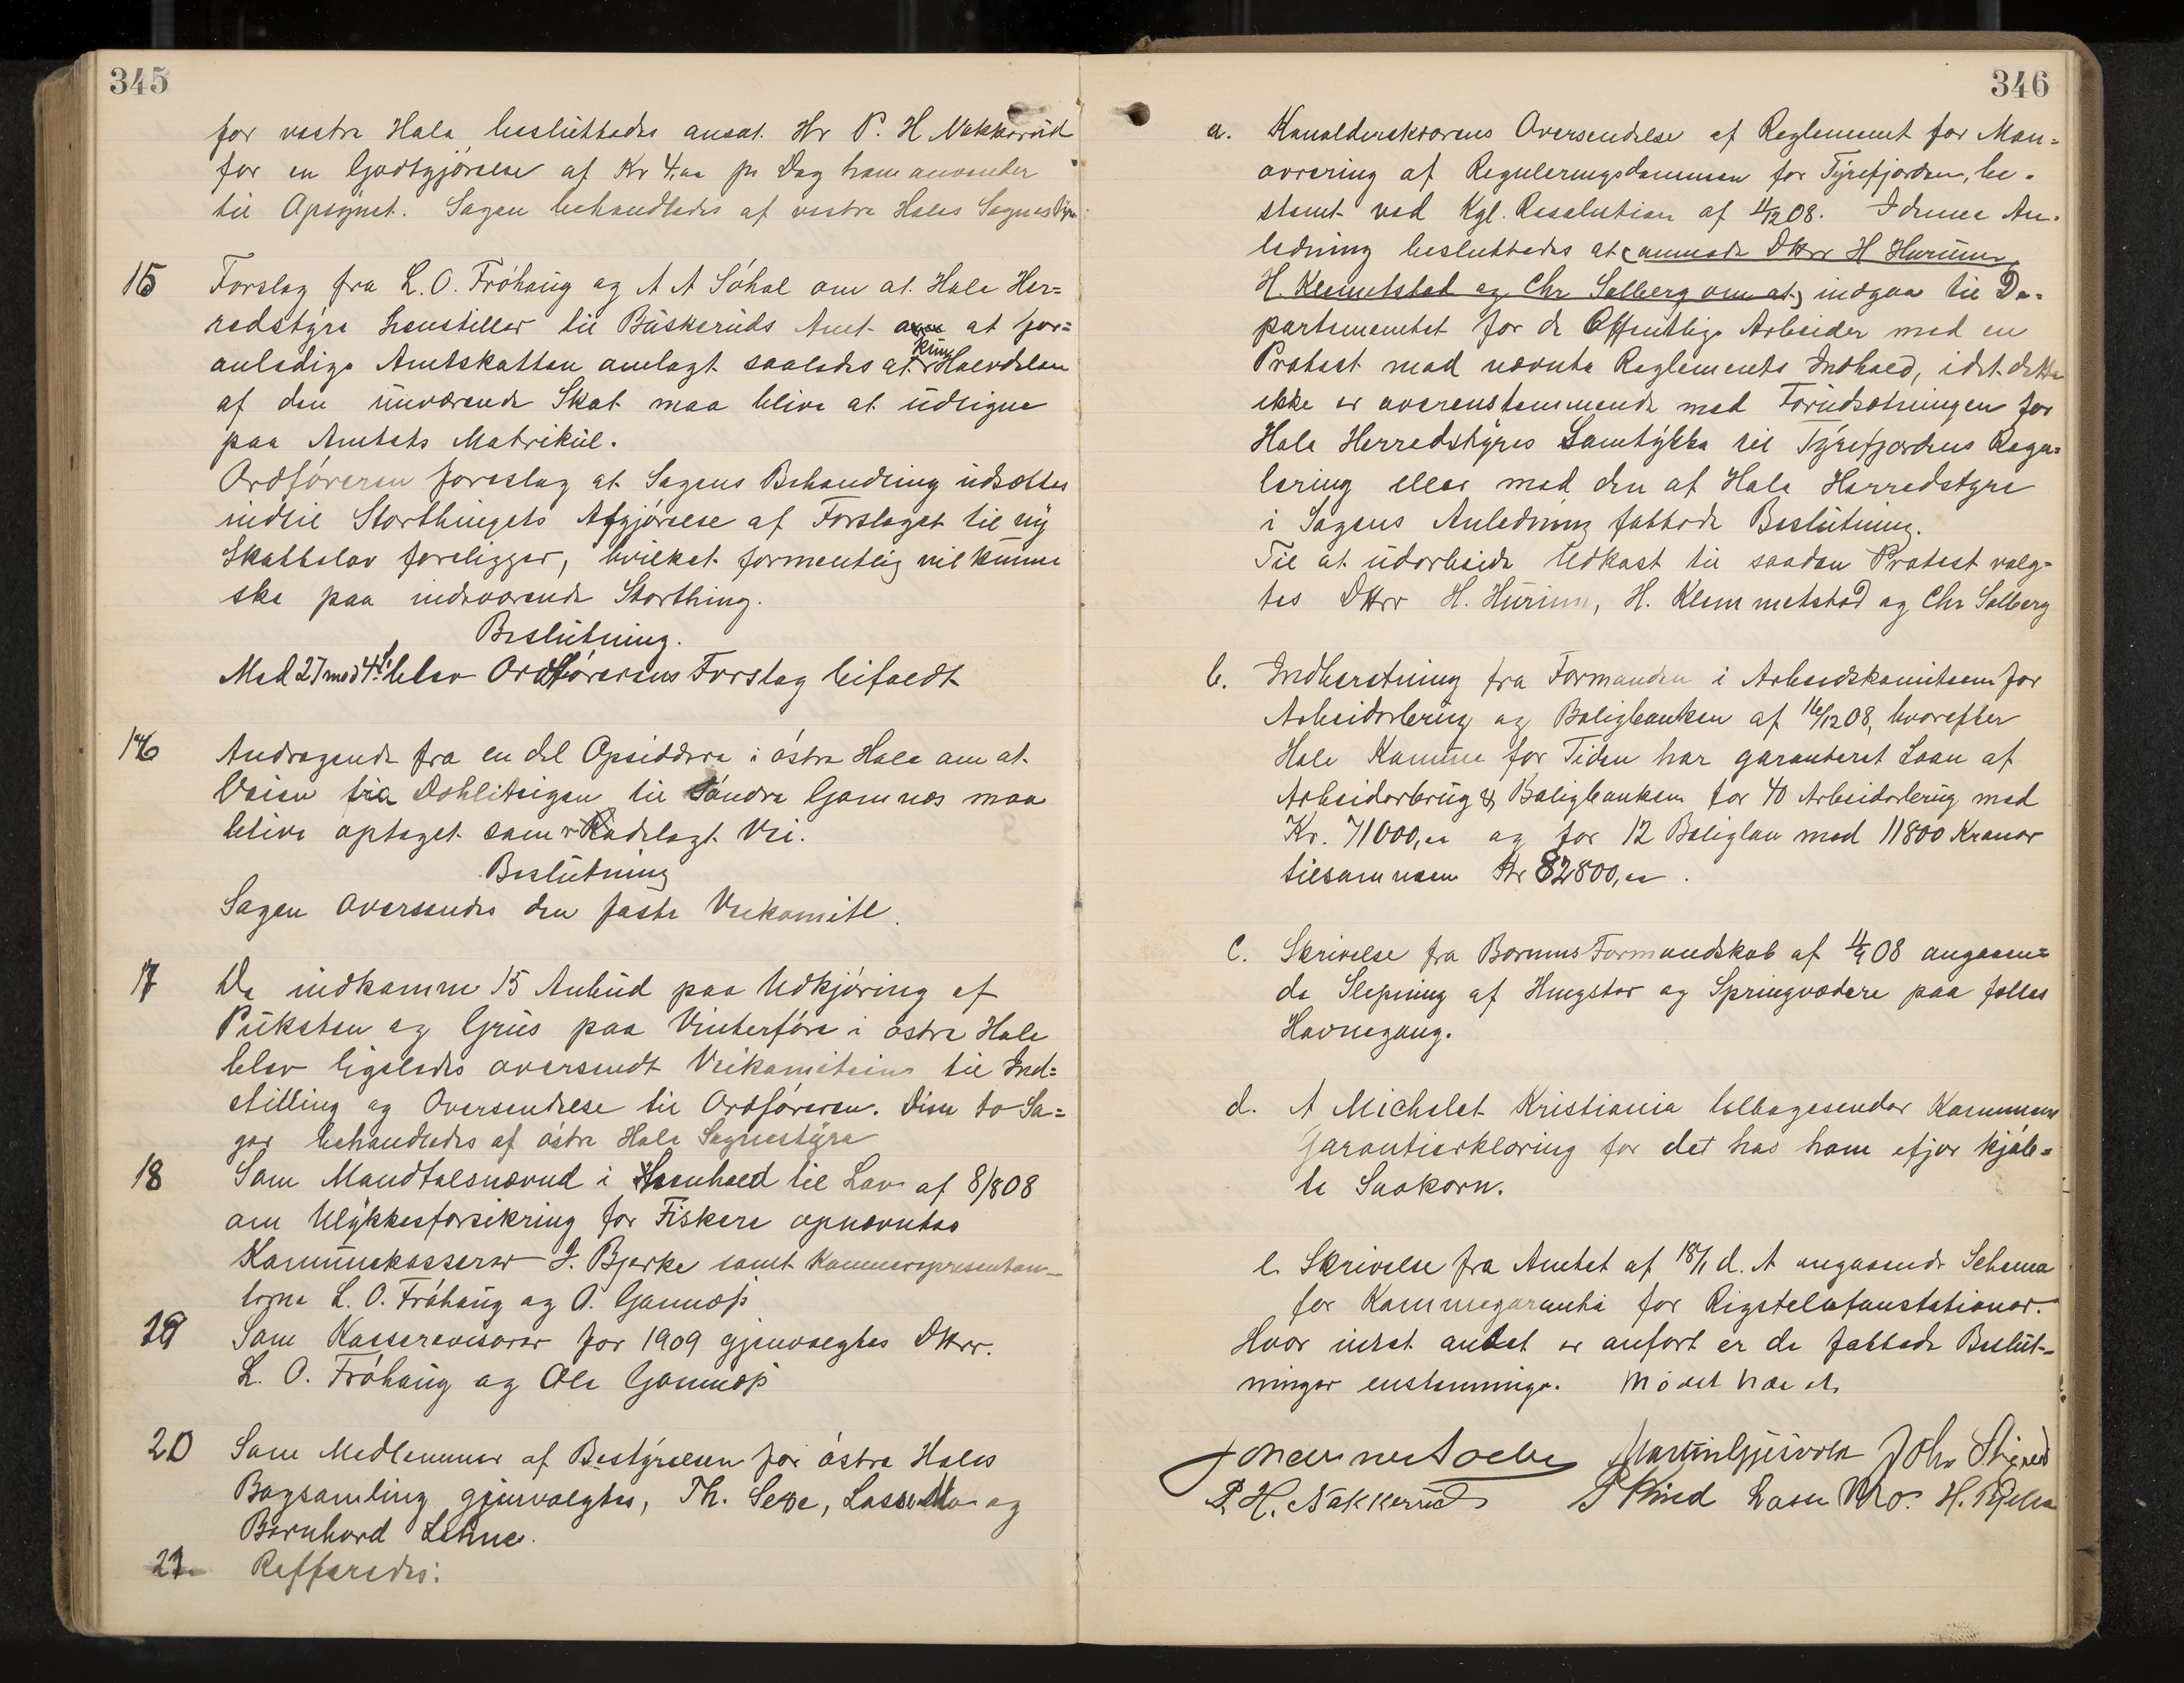 345
for vestre Hole, besluttedes ansat Hr P. H Nakkerud
for en Godtgjörelse af Kr 4,00 pr Dag han anvender
til Opsynet. Sagen behandledes af vestre Holes Sognestyre
15 Forslag fra L. O. Fröhaug og A A Söhol om at Hole Her=
redstyre henstiller til Buskeruds Amt at for=
anledige Amtskatten anlagt saaledes at kun Halvdelen
af den nuværende Skat maa blive at udligne
paa Amtets Matrikul.
Ordföreren foreslog at Sagens Behandling udsættes
indtil Storthingets Afgjörelse af Forslaget til ny
Skattelov foreligger, hvilket formentlig vil kunne
ske paa indeværende Storthing.
Beslutning.
Med 27 mod 4 St. blev Ordförerens Forslag bifaldt
16 Andragende fra en del Opsiddere i östre Hole om at
Veien fra Dohliteigen til Söndre Gomnæs maa
blive optaget som Rodelagt Vei.
Beslutning
Sagen oversendes den faste Veikomite.
17 De indkomne 15 Anbud paa Udkjöring af
Puksten og Grus paa Vinterföre i östre Hole
blev ligeledes oversendt Veikomiteen til Ind=
stilling og Oversendelse til Ordföreren. Disse to Sa=
ger behandledes af östre Hole Sognestyre
18 Som Mandtalsnævnd i Henhold til Lov af 8/8 08
om Ulykkesforsikring for Fiskere opnævntes
Kommunekasserer J. Bjerke samt Kommuerepresentan-
terne L. O. Fröhaug og O. Gomnæs
19 Som Kasserevisorer for 1909 gjenvalgtes DHrr.
L. O. Fröhaug og Ole Gomnæs
20 Som Medlemmer af Bestyrelsen for östre Holes
Bogsamling gjenvalgtes, Th. Sexe, Lasse Mo og
Bernhard Lehne.
21 Refferedes:
346
a. Kanaldirektörens Oversendelse af Reglement for Man=
övrering af Reguleringsdammen for Tyrefjorden, be=
stemt ved Kgl. Resolution af 4/12 08. I denne An=
ledning besluttedes at (anmode DHrr H Hurum,
H. Klemmetstad og Chr Solberg om at) indgaa til De=
partementet for de Offentlige Arbeider med en
Protest mod nævnte Reglements Indhold, idet dette
ikke er overenstemmende med Forudsætningen for
Hole Herredstyres Samtykke til Tyrefjordens Regu=
lering eller med den af Hole Herredstyre
i Sagens Anledning fattede Beslutning.
Til at udarbeide Udkast til saadan Protest valg=
tes DHrr H. Hurum, H. Klemmetstad og Chr Solberg
b. Indberetning fra Formanden i Arbeidskomiteen for
Arbeiderbrug og Boligbanken af 16/12 08, hvorefter
Hole Komune for Tiden har garanteret Laan af
Arbeiderbrug & Boligbanken for 40 Arbeiderbrug med
Kr. 71000,00 og for 12 Boliglaan med 11800 Kroner
tilsammen Kr 82800,00.
c. Skrivelse fra Bærums Formandskab af 4/9 08 angaaen=
de Slepning af Hingster og Springvædere paa fælles
Havnegang.
d. A Michelet Kristiania tilbagesender Kommunens
Garantierklæring for det hos ham ifjor kjöb=
te Saakorn.
e. Skrivelse fra Amtet af 18/1 d. A angaaende Schema
for Kommunegaranti for Rigstelefonstationer.
Hvor intet andet er anfört er de fattede Beslut-
ninger enstemmige. Mödet hævet.
Johannes Martin Gjesvold John Stigsrud
P. H. Nakkerud Lasse Mo. H.